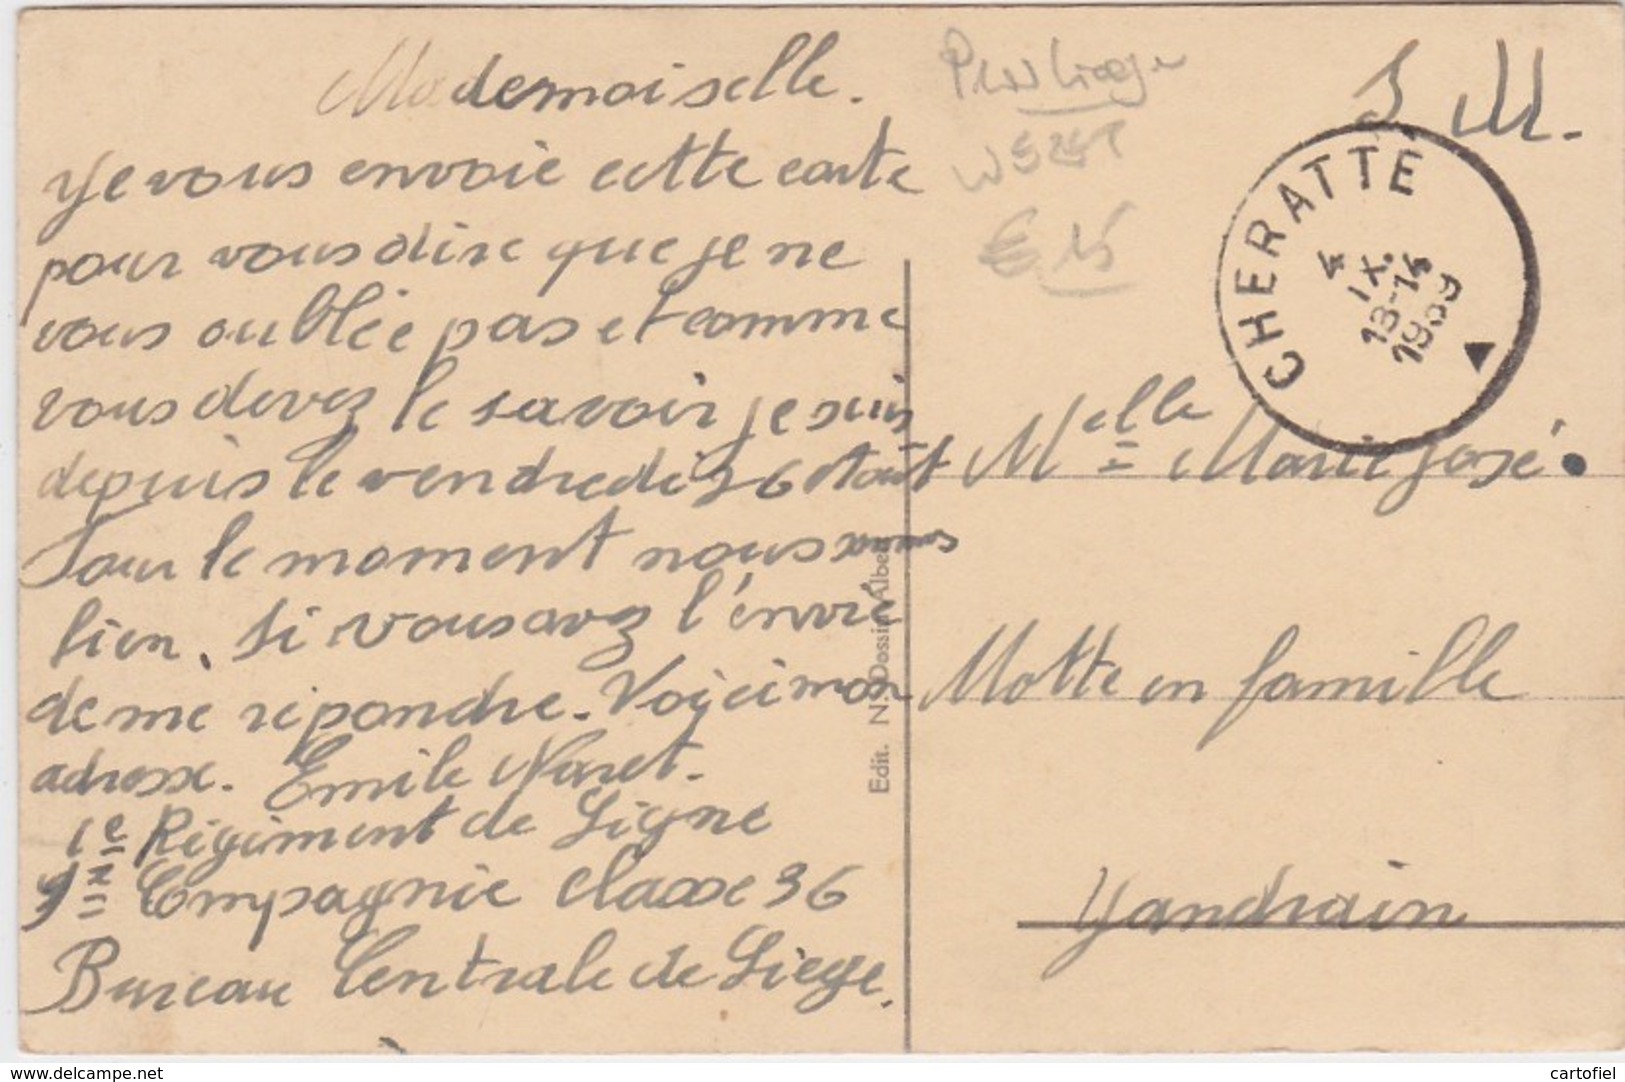 Mademoiselle.
Je vous envoie cette carte
pour vous dire que je ne
vous oublie pas et comme
vous devez le savoir je suis
depuis le vendredi 26 Aout
Pour le moment nous sommes
bien. Si vous avez l'envie
de me repondre. Voici mon
adresse. Emile Noret.
1e Régiment de Ligne
Compagnie classe 36
Bureau Centrale de Liege.
Edit. N. Dossin Albert
€ 15
S. M.
CHERATTE
4
IX.
13-14
1939
Melle Marie José.
Motte en famille
Yandrain
delcampe.net
cartofiel